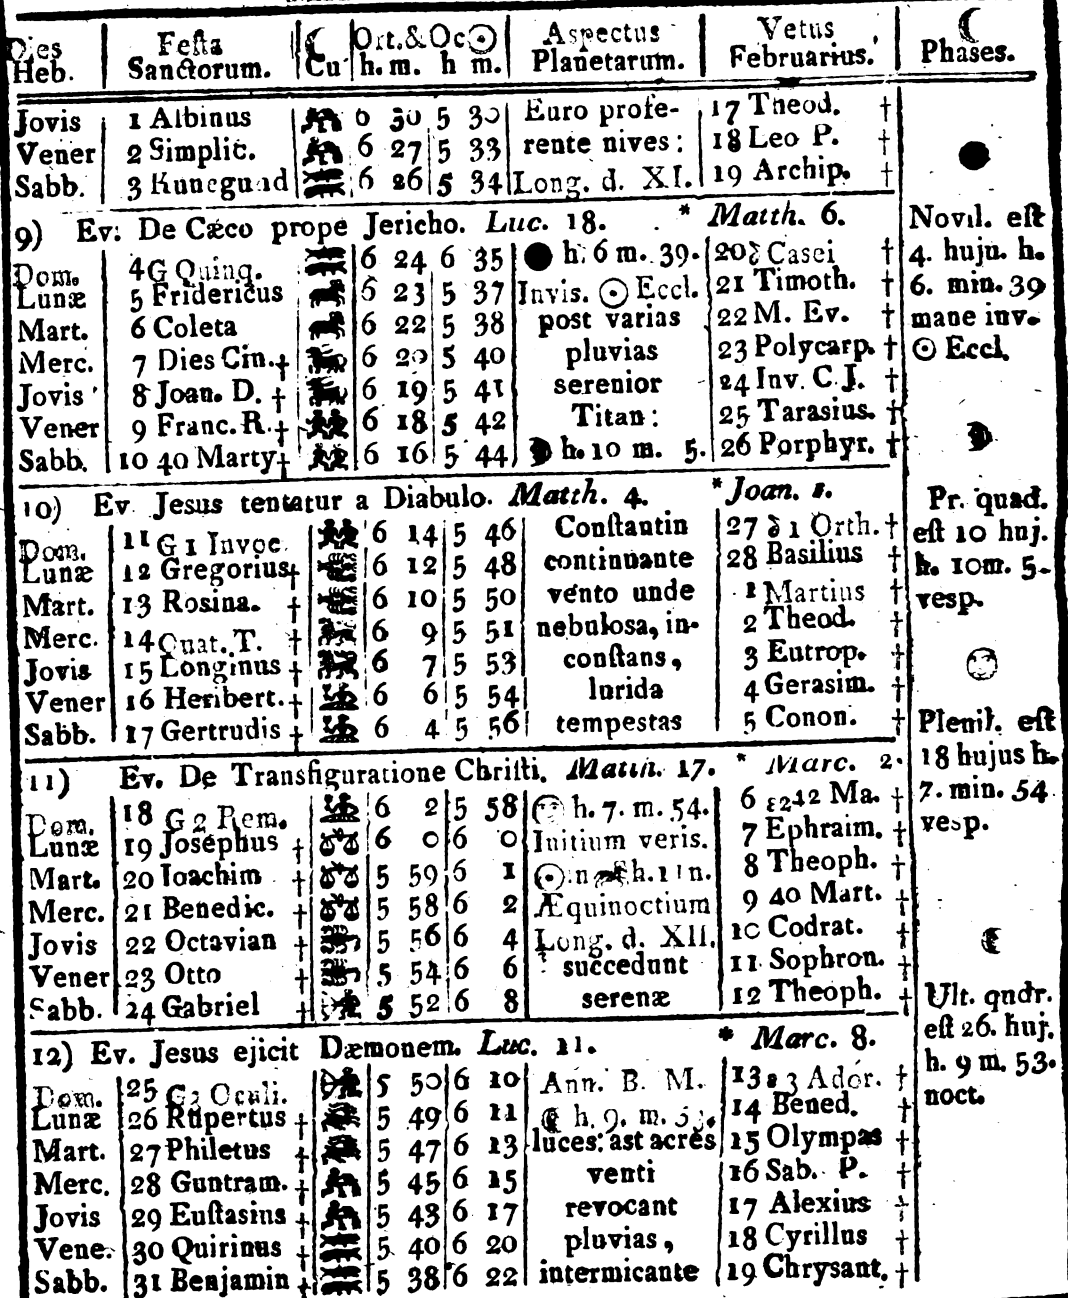 Dies Festa ☾ Ort.&Oc☉ Aspectus Vetus ☾
Heb. Sanctorum. Cu h. m. h m. Planetarum. Februarius. Phases.
Jovis 1 Albinus 6 30 5 30 Euro profe- 17 Theod. †
Vener 2 Simplic. 6 27 5 33 rente nives: 18 Leo P. †
Sabb. 3 Kunegund 6 26 5 34 Long. d. XI. 19 Archip. †
9) Ev. De Cæco prope Jericho. Luc. 18. * Matth. 6. Novil. eſt
Dom. 4 G Quinq. 6 24 6 35 ● h. 6 m. 39. 20 Casei † 4. hujn. h.
Lunæ 5 Fridericus 6 23 5 37 Invis. ☉ Eccl. 21 Timoth. † 6. min. 39
Mart. 6 Coleta 6 22 5 38 post varias 22 M. Ev. † mane inv.
Merc. 7 Dies Cin. † 6 20 5 40 pluvias 23 Polycarp. † ☉ Eccl.
Jovis 8 Joan. D. † 6 19 5 41 serenior 24 Inv. C. J. †
Vener 9 Franc. R. † 6 18 5 42 Titan: 25 Tarasius. †
Sabb. 10 40 Marty † 6 16 5 44 h. 10 m. 5. 26 Porphyr. †
10) Ev. Jesus tentatur a Diabulo. Matth. 4. * Joan. 1. Pr. quad.
Dom. 11 G 1 Invoc. 6 14 5 46 Conſtantin 27 1 Orth. † eſt 10 huj.
Lunæ 12 Gregorius † 6 12 5 48 continuante 28 Basilius † h. 10m. 5.
Mart. 13 Rosina. † 6 10 5 50 vento unde 1 Martius † vesp.
Merc. 14 Quat. T. † 6 9 5 51 nebulosa, in- 2 Theod. †
Jovis 15 Longinus † 6 7 5 53 conſtans, 3 Eutrop. †
Vener 16 Heribert. † 6 6 5 54 lurida 4 Gerasim. †
Sabb. 17 Gertrudis † 6 4 5 56 tempestas 5 Conon. † Plenil. eſt
11) Ev. De Transfiguratione Chriſti. Matth. 17. * Marc. 2. 18 hujus h.
Dom. 18 G 2 Rem. 6 2 5 58 h. 7. m. 54. 6 Ma. † 7. min. 54
Lunæ 19 Josephus † 6 0 6 0 Initium veris. 7 Ephraim. † vesp.
Mart. 20 Ioachim † 5 59 6 1 ☉ in h. 11n. 8 Theoph. †
Merc. 21 Benedic. † 5 58 6 2 Æquinoctium 9 40 Mart. †
Jovis 22 Octavian † 5 56 6 4 Long. d. XII. 10 Codrat. †
Vener 23 Otto † 5 54 6 6 succedunt 11 Sophron. †
Sabb. 24 Gabriel † 5 52 6 8 serenæ 12 Theoph. † Ult. qudr.
12) Ev. Jesus ejicit Dæmonem. Luc. 11. * Marc. 8. eſt 26. huj.
Dom. 25 G 3 Oculi. 5 50 6 10 Ann. B. M. 13 3 Ador. † h. 9 m. 53.
Lunæ 26 Rupertus † 5 49 6 11 h. 9. m. 53. 14 Bened. † noct.
Mart. 27 Philetus † 5 47 6 13 luces: ast acres 15 Olympas †
Merc. 28 Guntram. † 5 45 6 15 venti 16 Sab. P. †
Jovis 29 Euſtasius † 5 43 6 17 revocant 17 Alexius †
Vene. 30 Quirinus † 5 40 6 20 pluvias, 18 Cyrillus †
Sabb. 31 Benjamin † 5 38 6 22 intermicante 19 Chrysant. †